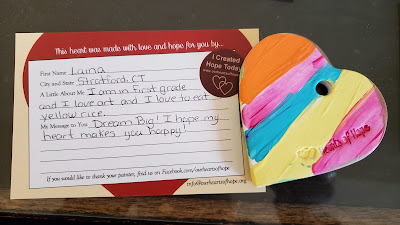 This heart was made with love and hope for you by...
First Name Laina
City and State Stratford, CT
A Little About Me I am in first grade
and I love art and I love to eat
yellow rice.
My Message to You Dream Big! I hope my
heart makes you happy!
If you would like to thank your painter, find us on Facebook.com/ourheartsofhope
info@ourheartsofhope.org
I Created
Hope Today!
www.ourheartsofhope.org
Hearts of Hope